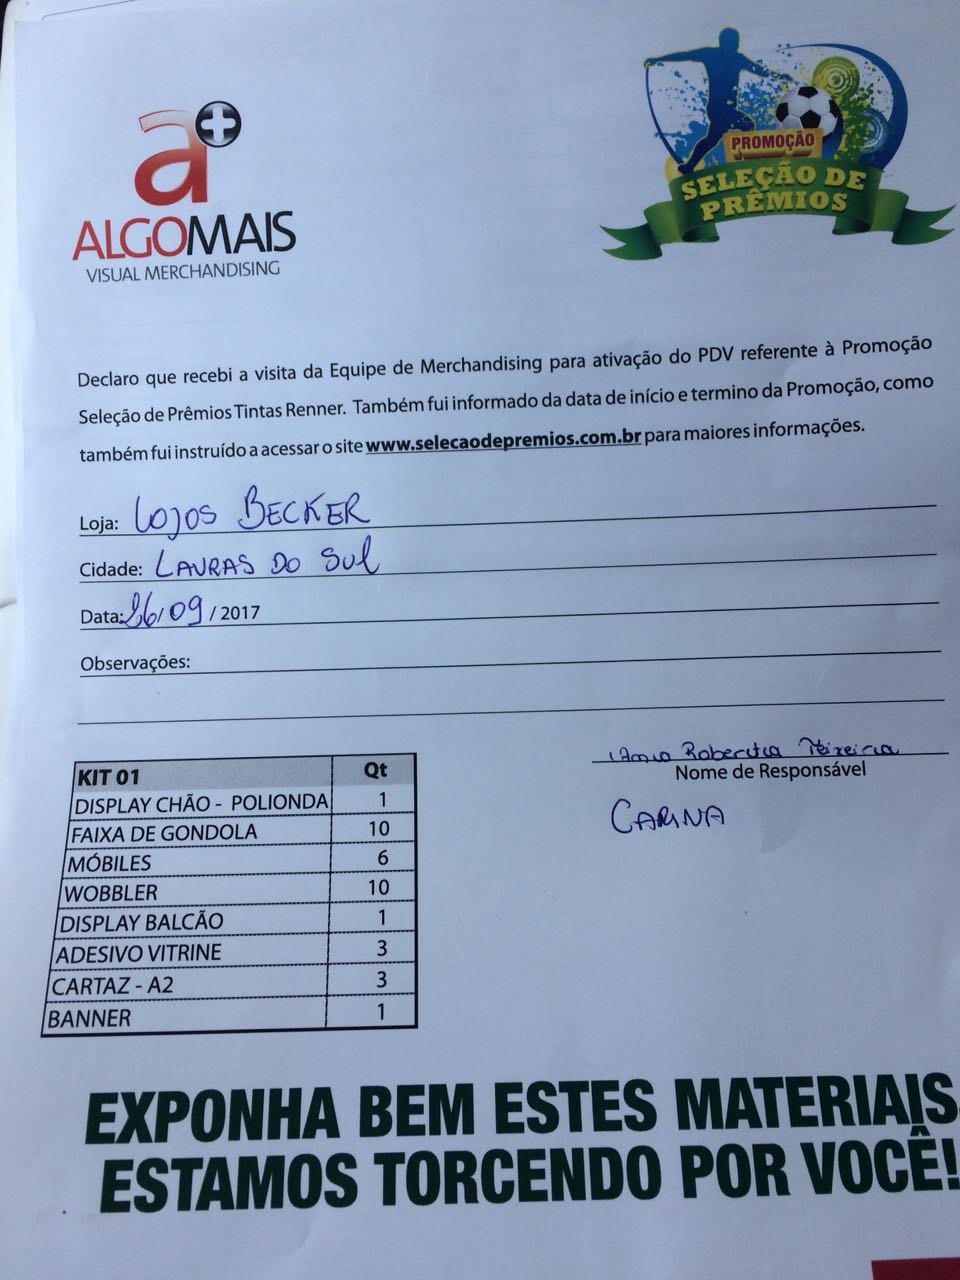 a+
ALGOMAIS
VISUAL MERCHANDISING
PROMOÇÃO
SELEÇÃO DE
PRÊMIOS
Declaro que recebi a visita da Equipe de Merchandising para ativação do PDV referente à Promoção
Seleção de Prêmios Tintas Renner. Também fui informado da data de início e termino da Promoção, como
também fui instruído a acessar o site www.selecaodepremios.com.br para maiores informações.
Loja: Lojos BECKER
Cidade: LAVRAS DO SUL
Data: 26/09/2017
Observações:
Teixeira
Nome de Responsável
CARINA
KIT 01 Qt
DISPLAY CHÃO - POLIONDA 1
FAIXA DE GONDOLA 10
MÓBILES 6
WOBBLER 10
DISPLAY BALCÃO 1
ADESIVO VITRINE 3
CARTAZ - A2 3
BANNER 1
EXPONHA BEM ESTES MATERIAIS
ESTAMOS TORCENDO POR VOCÊ!